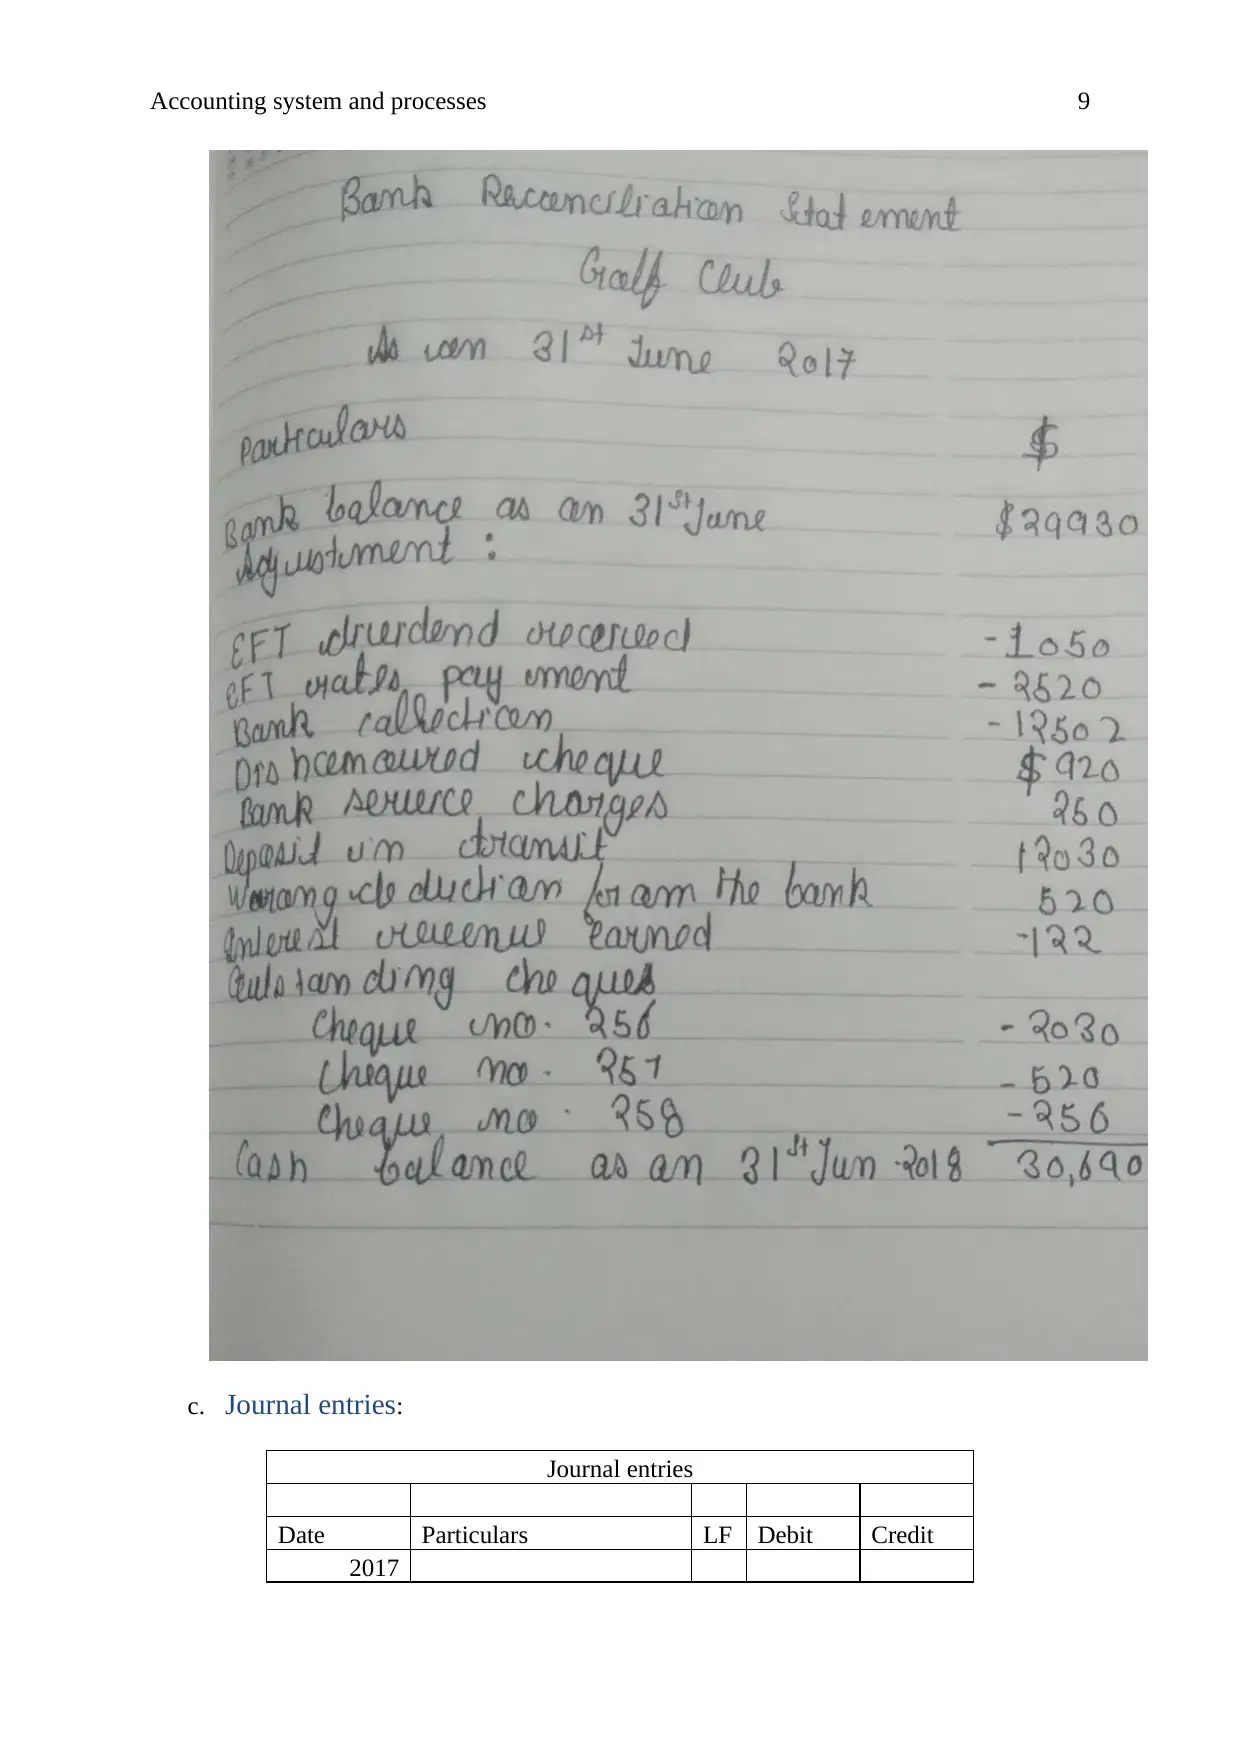 Accounting system and processes 9
Bank Reconciliation Statement
Golf Club
As on 31st June 2017
Particulars $
Bank balance as on 31st June $29930
Adjustment :
EFT dividend received -1050
EFT rates payment - 2520
Bank collection - 12502
Dishonoured cheque $920
Bank service charges 250
Deposit in transit 12030
Wrong deduction from the bank 520
Interest revenue earned -122
Outstanding cheques
Cheque no. 256 - 2030
Cheque no. 257 - 520
Cheque no. 258 - 256
Cash balance as on 31st Jun 2018 30,690
c. Journal entries:
Journal entries
Date Particulars LF Debit Credit
2017